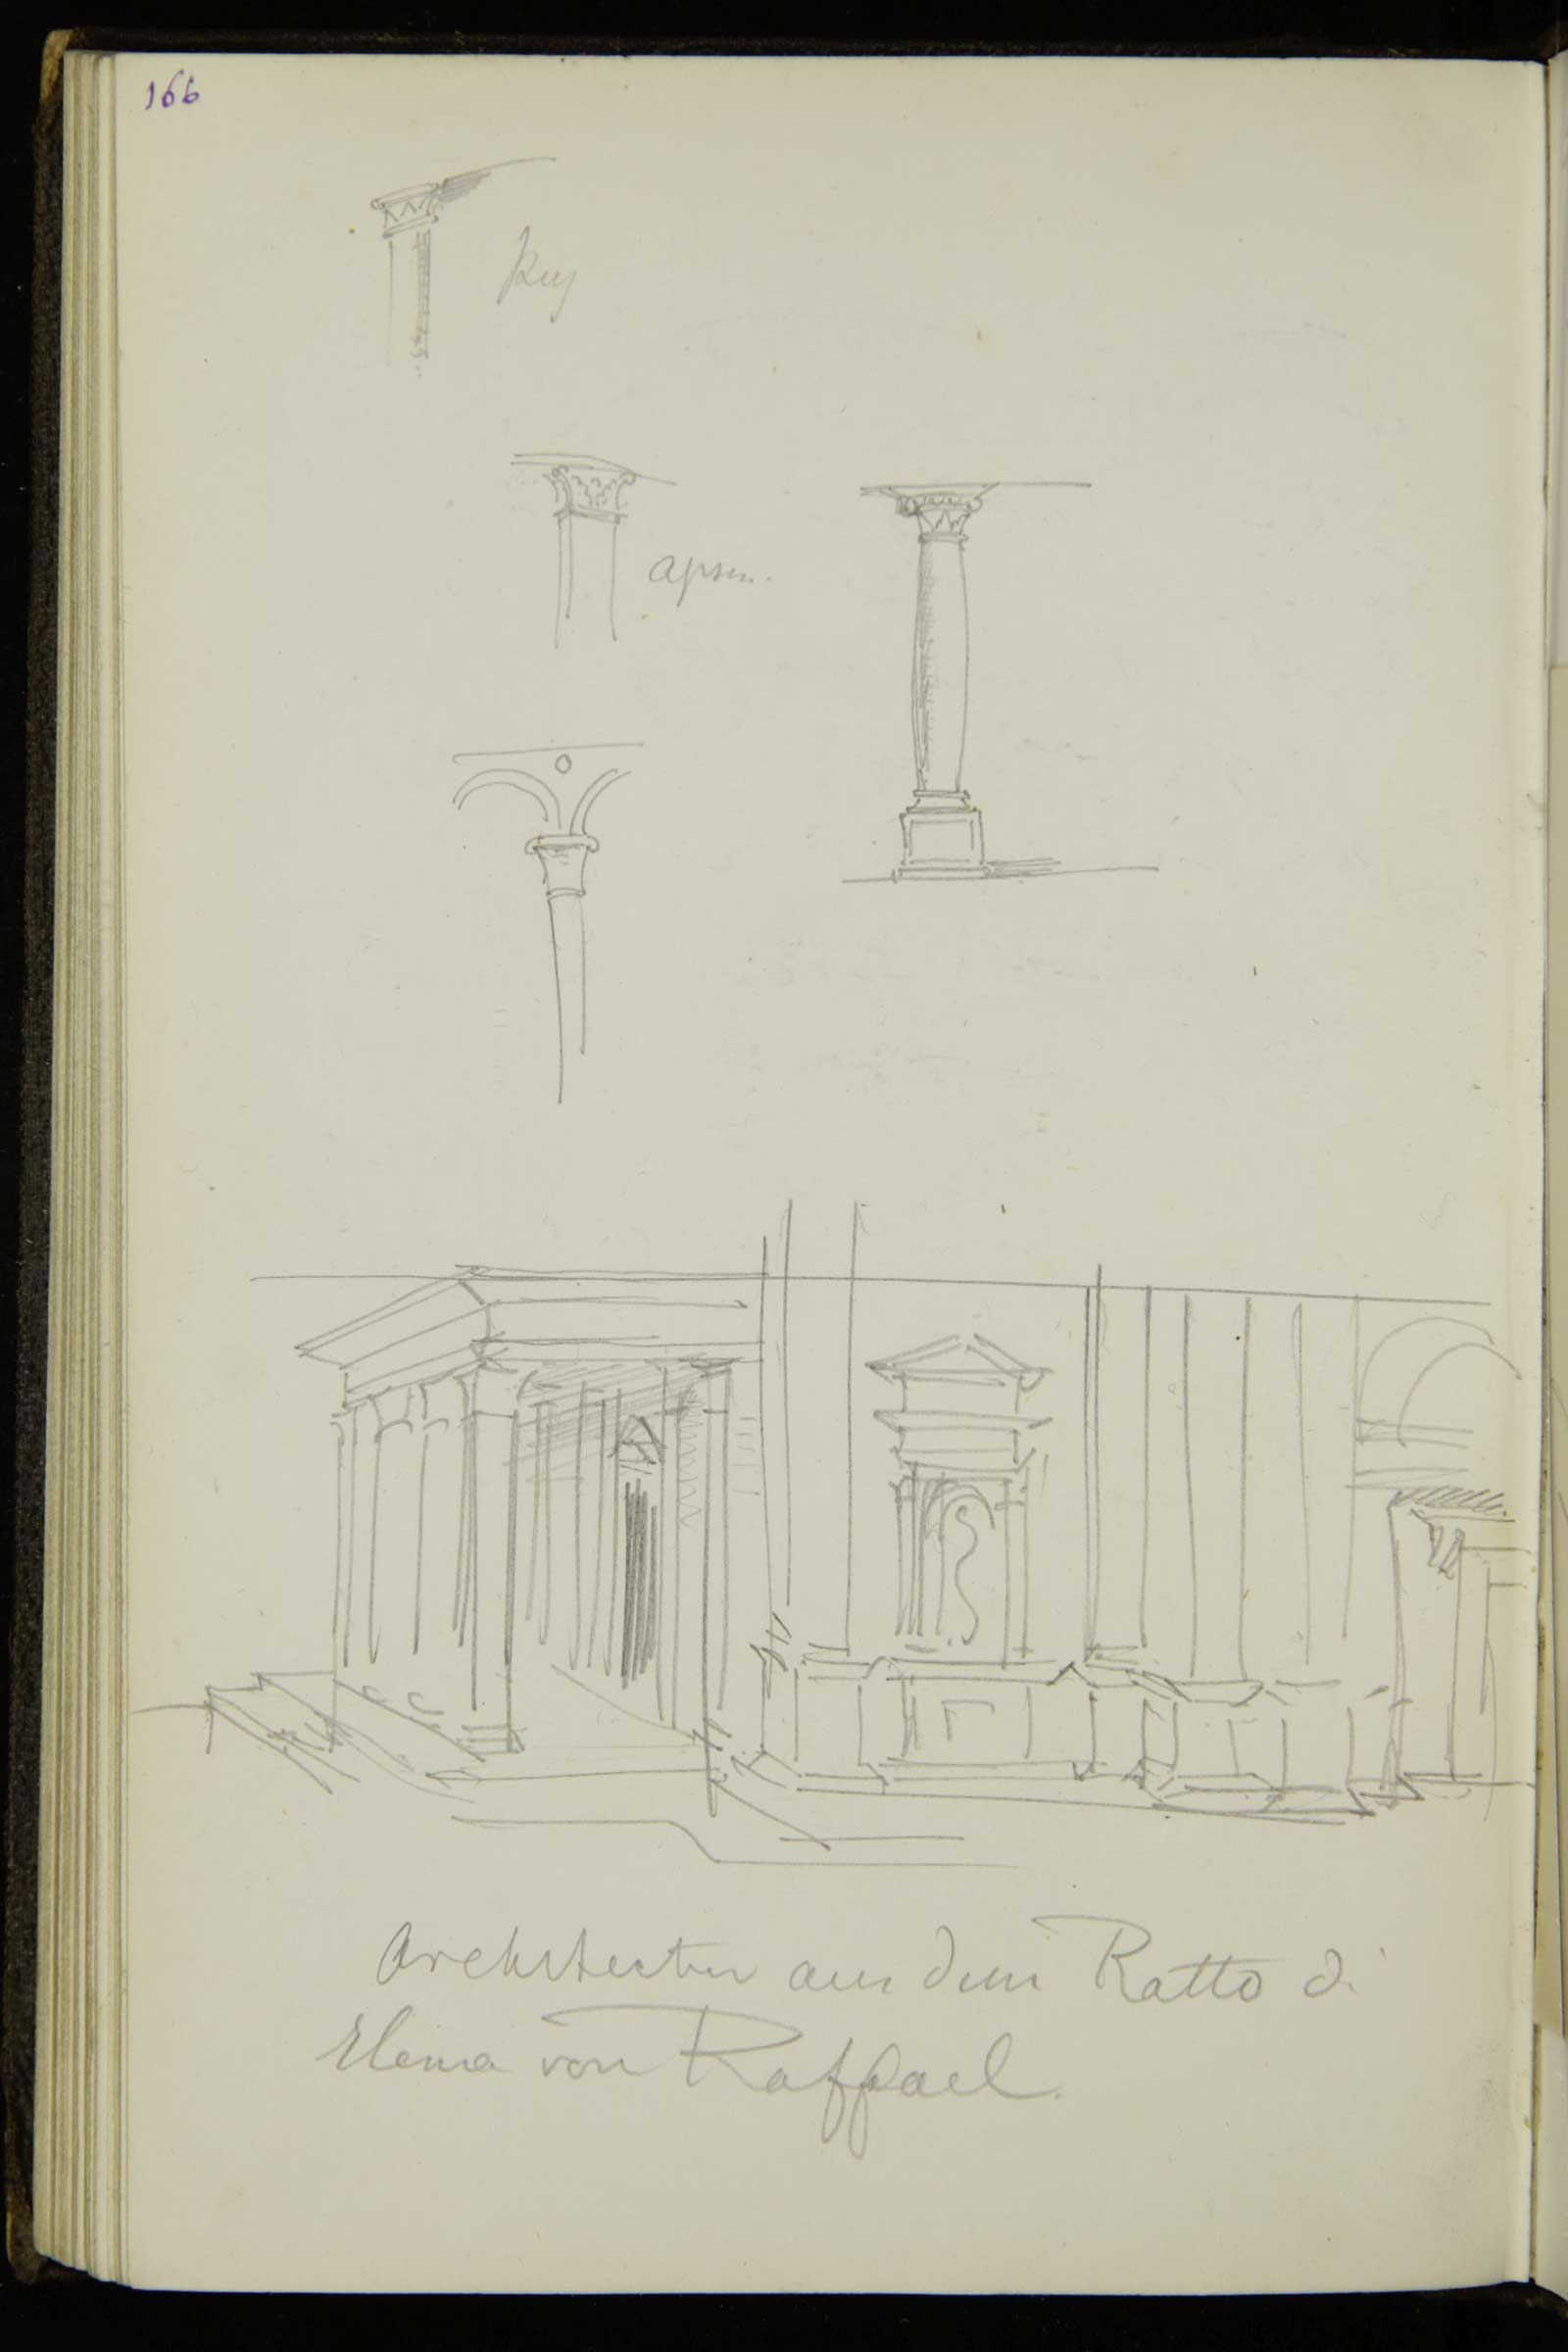 166
Architectur aus dem Ratto di
Elena von Raffael.